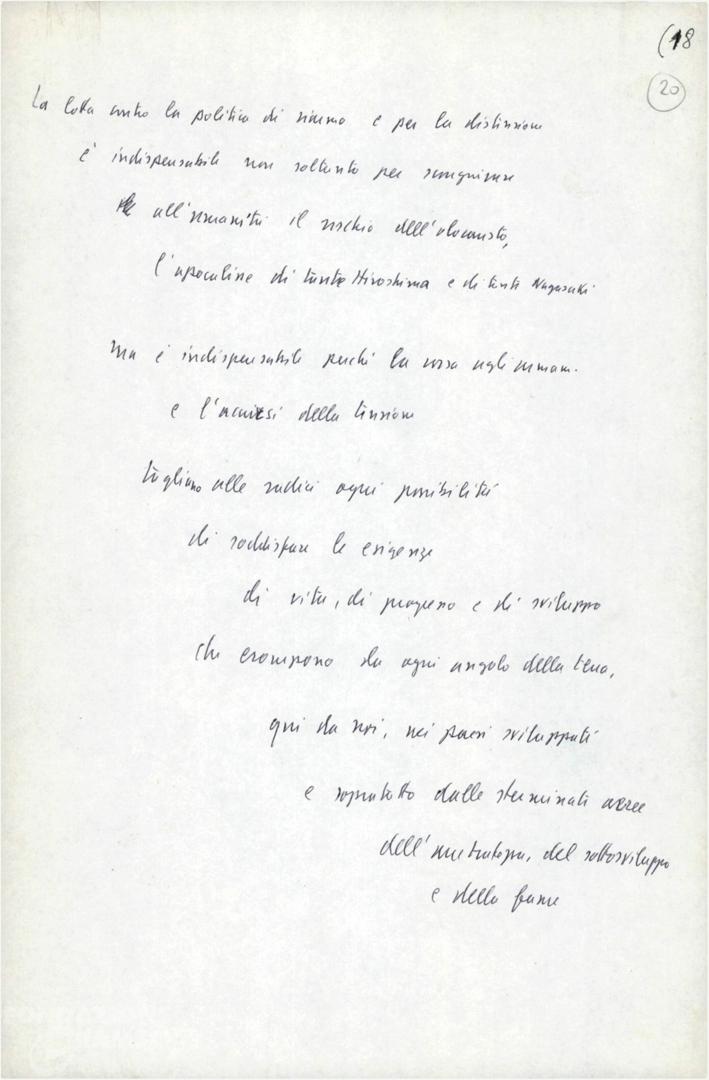 (18
20
La lotta contro la politica di riarmo e per la distensione
è indispensabile non soltanto per scongiurare
all'umanità il rischio dell'olocausto,
l'apocalisse di tante Hiroshima e di tante Nagasaki
Ma è indispensabile perché la corsa agli armam.
e l'acuirsi della tensione
tagliano alle radici ogni possibilità
di soddisfare le esigenze
di vita, di progresso e di sviluppo
che erompono da ogni angolo della terra,
qui da noi, nei paesi sviluppati
e sopratutto dalle sterminate aree
dell'arretratezza, del sottosviluppo
e della fame